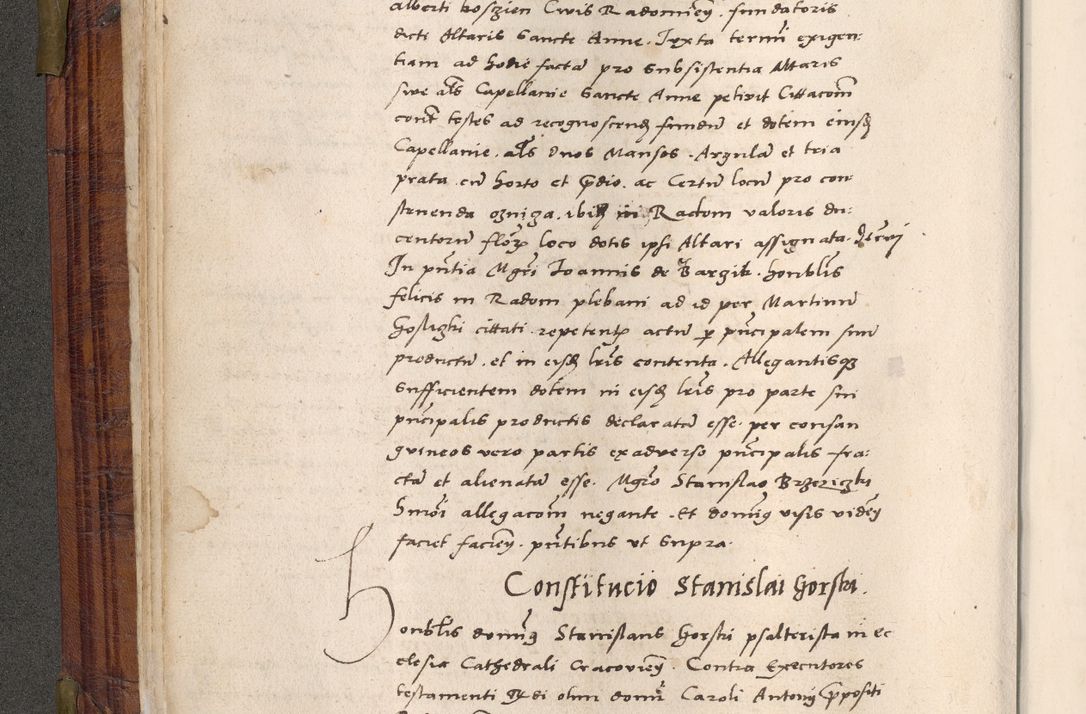 alberti koszien Civis Radomien̄. fundatoris
dicte Altaris Sancte Anne. Iuxta termi exigen
tiam ad hodie facta pro Subsistentia Altaris
sive als Capellanie Sancte Anne petivit Cittacom̄
cont testes ad recognoscend fundu et dotem eiusd
Capellanie. als duos Mansos. Argula et tria
prata. cu horto et pdio. ac Certu locu pro con
struenda ozniza. ibid in Radom valoris du
centoru floz loco dotis ipsi Altari assignata.
In pntia Mgri Ioannis de Bargik. honblis
felicis in Radom plebani ad id per Martinu
Goslizki cittati. repetentz actu p principalem suu
productu. et in eisd lris contenta. Allegantisqz
Sufficientem dotem in eisd lris pro parte sui
principalis productis declarata esse. per consan
guineos vero partis exadverso principalis fra
cta et alienata esse. Mgro Stanislao Brzeziczki
Smoi allegacom̄ negante. Et doming visis viden
faciet facien̄. pntibus ut Supra.
Constitucio Stanislai Gorski.
Honblis doming Stanislaus Gorski psalterista in ec
clesia Cathedrali Cracovien̄. Contra Executores
testamenti olim domi Caroli Antonij ppositi